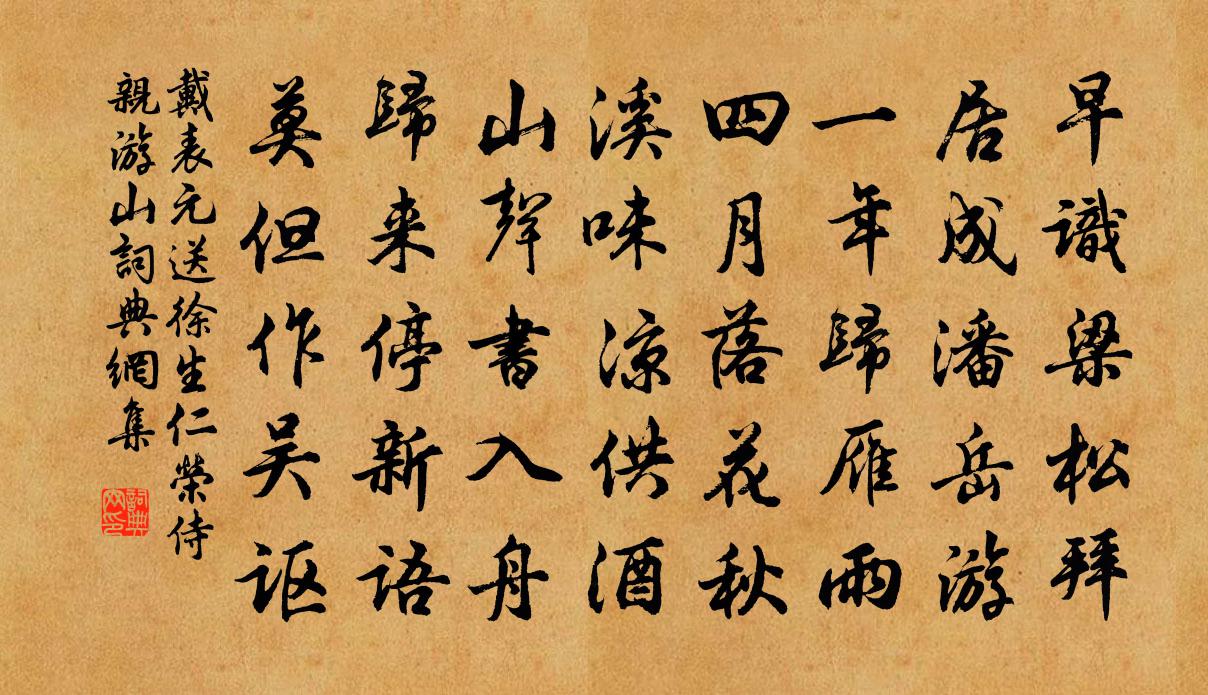 早識梁松拜
居成潘岳游
一年歸雁雨
四月落花秋
溪味凉供酒
山聲書入舟
歸来停新语
莫但作吴讴
戴表元送徐生仁榮侍
親游山詞典網集
詞典
网印